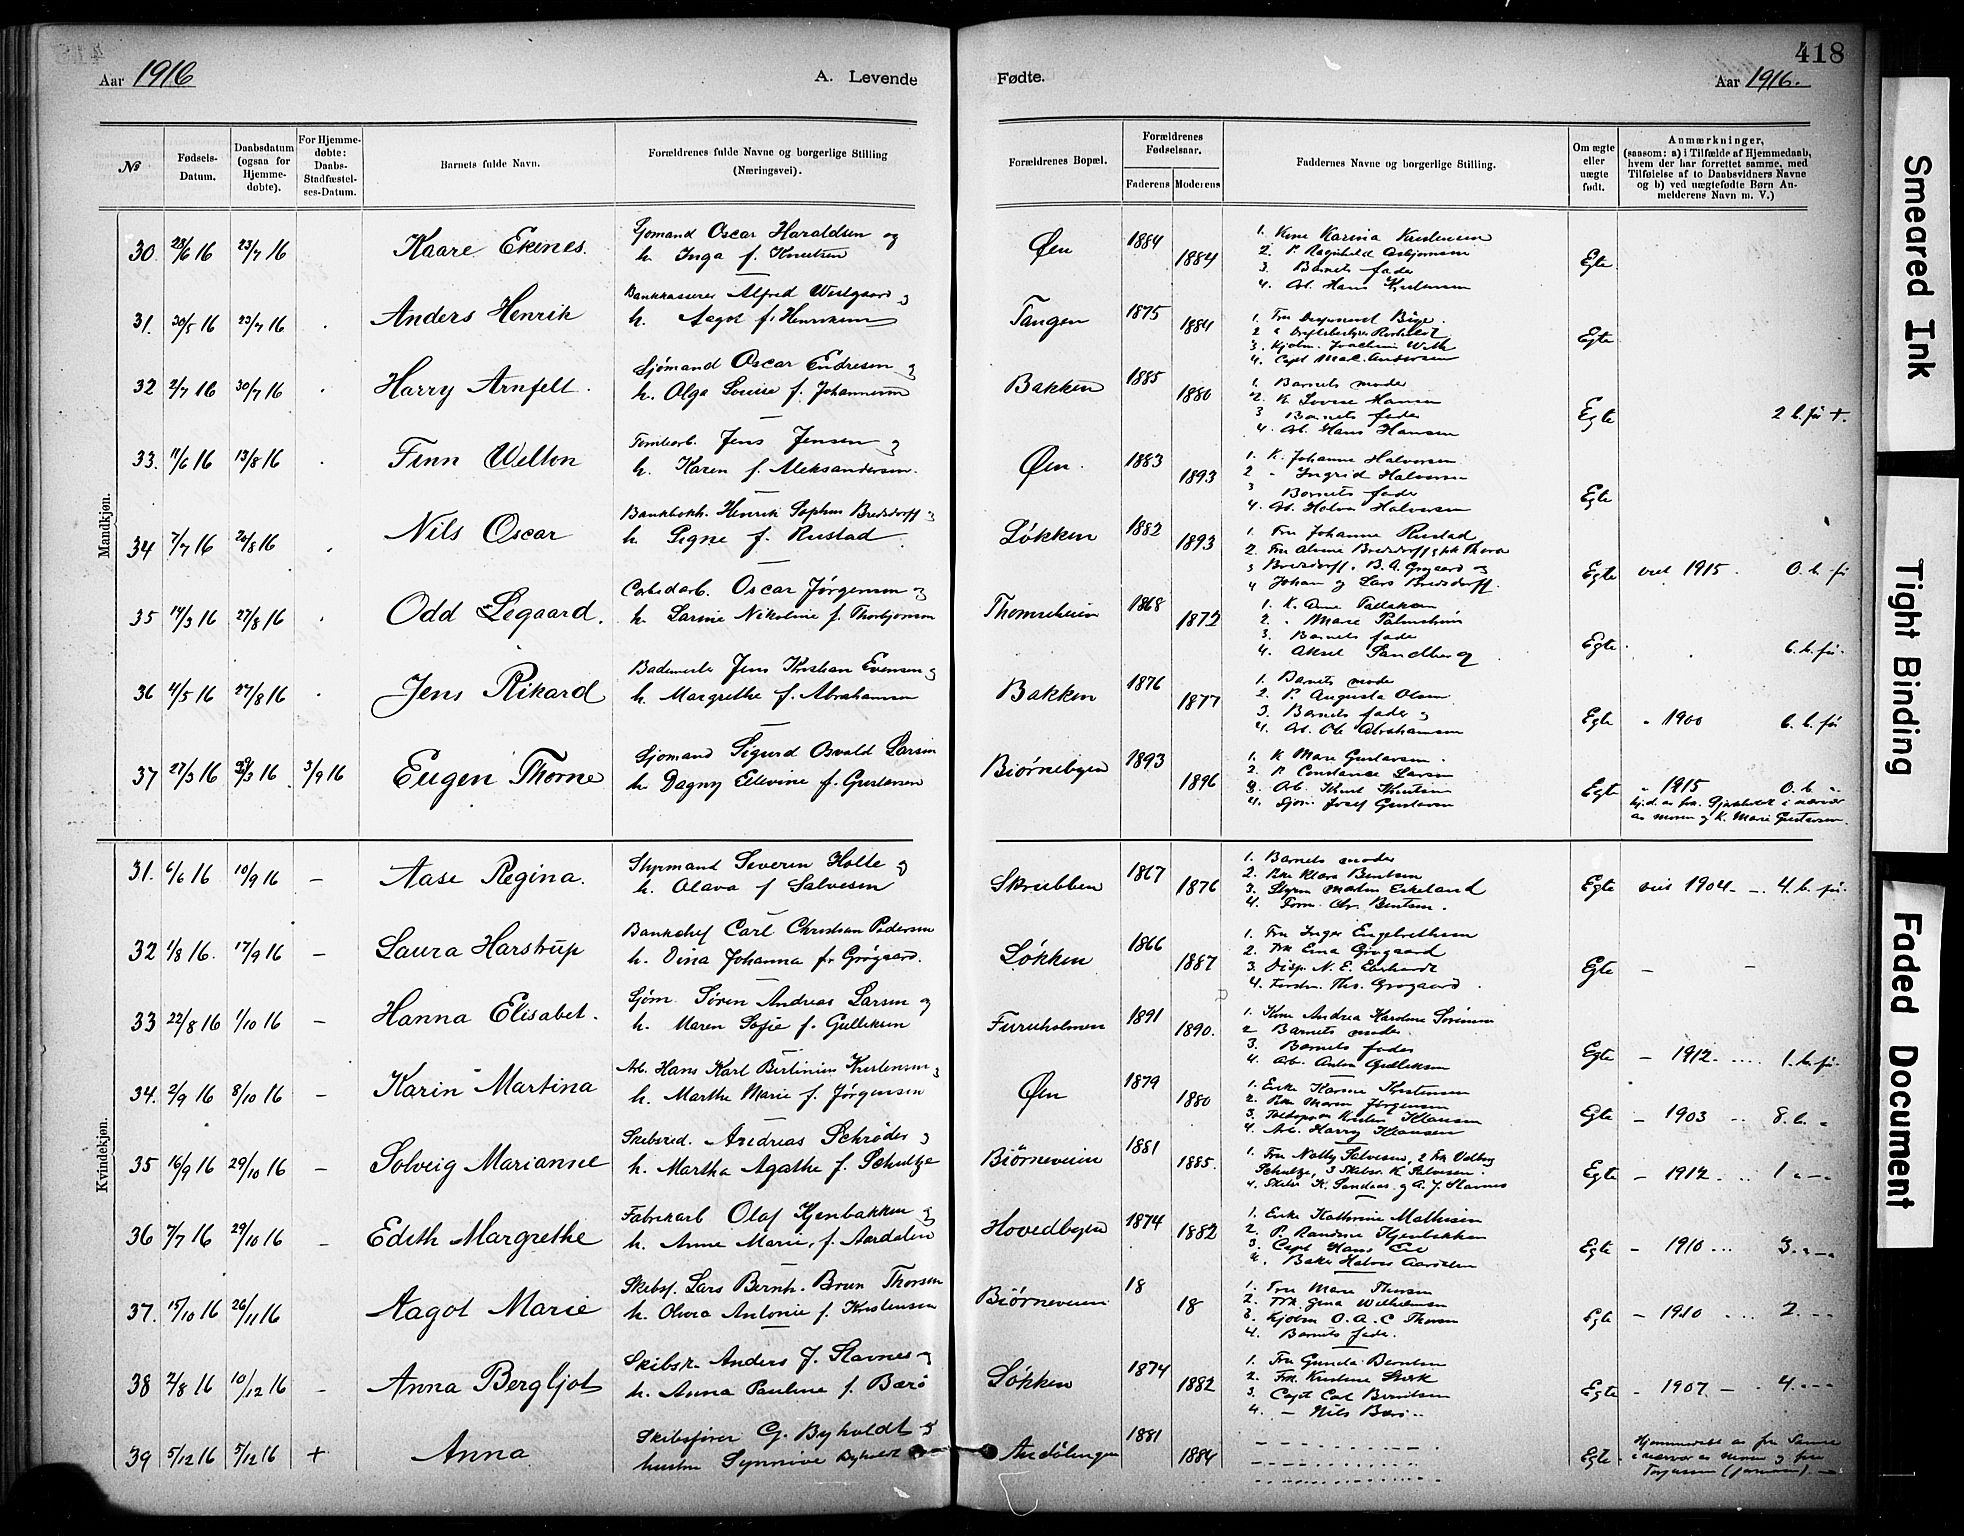 418
Aar 1916
A. Levende
Fødte.
Aar 1916.
№
Fødsels-Datum.
Daabsdatum (ogsaa for Hjemmedøbte).
For Hjemmedøbte: Daabs-Stadfæstelses-Datum.
Barnets fulde Navn.
Forældrenes fulde Navne og borgerlige Stilling (Næringsvei).
Forældrenes Bopæl.
Forældrenes Fødselsaar.
Faderens
Moderens
Faddernes Navne og borgerlige Stilling.
Om ægte eller uægte født.
Anmærkninger,
(saasom: a) i Tilfælde af Hjemmedaab,
hvem der har forrettet samme, med
Tilføielse af to Daabsvidners Navne
og b) ved uægtefødte Børn An-
melderens Navn m. V.)
Mandkjøn.
30. 28/6 16 23/7 16 Kaare Ekenes. Sjømand Oscar Haraldsen og
h. Inga f. Knutsen Øen 1884 1884 Egte
1. Kone Karina Kristensen
2. P. Ragnhild Asbjørnsen
3. Barnets fader
4. Arb. Hans Kristensen
31. 30/5 16 23/7 16 Anders Henrik Bankkasserer Alfred Westgaard og
h. Aagot f. Henriksen Tangen 1875 1884 Egte
4. Capt.
32 2/7 16 30/7 16 Harry Arnfelt. Sjømand Oscar Endresen og
h. Olga Louise f. Johannesen Bakken 1885 1880 Egte 2 b. før +.
1. Barnets moder
2. K. Lovise Hansen
3 Barnets fader
4. Arb. Hans Hansen
33. 11/6 16 13/8 16 Finn Welton Tomtearb. Jens Jensen og
h. Karen f. Aleksandersen. Øen. 1883 1893 Egte
1. K. Johanne Halvorsen
2 " Ingrid Halvorsen
3 Barnets fader
4. Arb. Halvor Halvorsen
34 7/7 16 20/8 16 Nils Oscar Bankbokh. Henrik Sophus Bredsdorff og
h. Signe f. Rustad. Løkken 1882 1893 Egte viet 1915. 0. b. før
1. Fru Johanne Rustad
2. Fru Alvine Bredsdorff, frk Thora
3 Bredsdorff. B. A. Grøgaard og
4 Johan og Lars Bredsdorff.
35 14/3 16 27/8 16 Odd Legaard. Oscar Jørgensen og
h. Larine Nikoline f. Thorbjørnsen Thomseheien 1868 1872 Egte. 6. b. før.
3. Barnets fader
4. Aksel Sandberg
36 4/5 16 27/8 16 Jens Rikard Jens Kristian Evensen og
h. Margrethe f. Abrahamsen Bakken 1876 1877 Egte " 1900 6. b. før
1. Barnets moder
2. P. Augusta Olsen
3. Barnets fader og
4. Arb. Ole Abrahamsen
37 27/3 16 29/3 16 3/9 16 Eugen Thorne Sjømand Sigurd Osvald Larsen
h. Dagny Ellevine f. Gustavsen Biørnebogen 1893 1896 Egte " 1915 0. b. "
1. K Marie Gustavsen.
2. P. Constance Larsen
3. Arb. Knut Knutsen
4. Sjøm. Josef Gustavsen
av moren og K. Marie Gustavsen.
Kvindekjøn.
31. 6/6 16 10/9 16 – Aase Regina. Styrmand Severin Holte og
h. Olava f Salvesen Skrubben 1867 1876 Egte viet 1904 - - 4. b. før.
1. Barnets moder
2. Pike Klara Bentsen
3. Styrm Martin Eskeland
4. Form. Chr. Bentsen.
32 1/8 16. 17/9 16 – Laura Harstrup Bankchef Carl Christian Pedersen
h. Dina Johanna f. Grøgaard. Løkken 1866 1887 Egte – –
1. Fru Inger Engelrethsen
2. Frk Ema Grøgaard
3. Disp. N. E.
4. Forstm. Ths. Grøgaard.
33 22/8 16 1/10 16 – Hanna Elisabet. Sjøm. Søren Andreas Larsen og
h. Maren Sofie f. Gulliksen Furuholmen 1891 1890. Egte – 1912 .... 1. b. før.
1. Kone Andrea Karoline Sørensen
2 Barnets moder.
3. Barnets fader
4. Arb. Anton Gulliksen
34. 2/9 16 8/10 16 – Karin Martina Arb. Hans Karl Bertinius Kristensen og
h. Marthe Marie f. Jørgensen Øen 1879 1880 Egte – 1903 ... 8. b. "
1. Enke Karine Kristensen
2. Pike Maren Jørgensen
3. Kristen Klausen
4. Arb. Harry Klausen
35 16/9 16 29/10 16 – Solveig Marianne Skibsred. Andreas Schrøder og
h. Martha Agathe f. Schultze Biørneveien 1881 1885. Egte – 1912. .. 1 " –
1. Fru Nathy Salvesen, 2 Frk Valborg
Schultze, 3 Skibsr. K. Salvesen.
4. Skibsr K. Sandaas og A. J. Stavnes
36 7/7 16 29/10 16 – Edith Margrethe Fabrikarb Olaf Kjenbakken og
h. Anne Marie, f. Aardalen Hovedbogen 1874 1882 Egte – 1910 ... 3. " –
1. Enke Kathrine Mathisen
2. P. Randine Kjenbakken
3. Capt Hans
4. Baker Halvor Aardalen
37. 15/10 16 26/11 16 Aagot Marie Skibsf. Lars Bernh. Brun Thorsen
h. Olivia Antonie f. Kristensen Biørneveien 18 18 Egte – 1910 ... 2. – –
1. Fru Marie Thorsen
2. Frk. Gina Wilhelmsen
3. Kjøbm O. A. C Thorsen
4. Barnets fader.
38 2/8 16 10/12 16 – Anna Bergljot Skibsr. Anders J. Stavnes og
h. Anna Pauline f. Bærø Løkken 1874 1882 Egte – 1907 – . 4. – –
1. Fru Gunda Berntsen
2. Frk. Kristine Sterk
3. Capt Carl Berntsen
4. – Nils
39 5/12 16 5/12 16 + Anna Skibsfører G. Byholdt og
hustru Synnive Byholdt Andølingen 1881 1884 Egte –
Hjemmedøbt av fru
i nærvær av moren og fru
Torjussen (jormor). –
Smeared Ink
Tight Binding
Faded Document